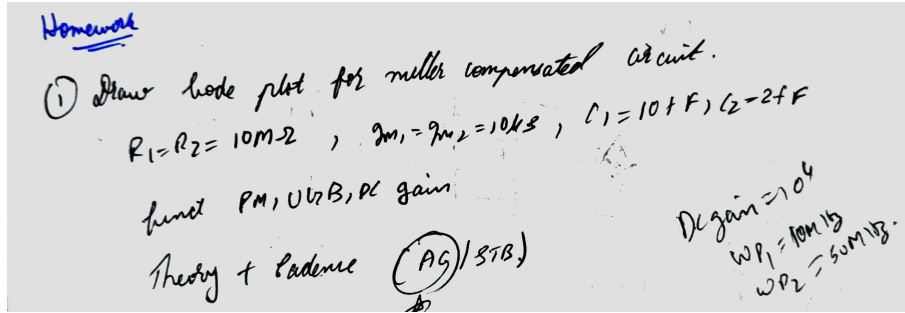 Homework
① Draw bode plot for miller compensated circuit.
R1=R2= 10MΩ , gm1=gm2=10μS , C1=10fF, C2=2fF
PM, UGB, DC gain
Theory + Cadence (AC)/STB)
DC gain=10⁴
WP1=10MHz
WP2=50MHz.